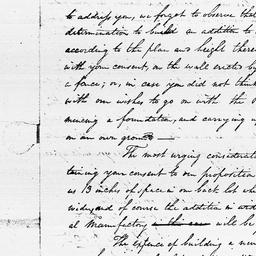 to address you, we forgot to observe that
determination to build an addition to
according to the plan and height there
with your consent, on the wall erected by
a fence; or, in case you did not think
with our wishes to go on with the
mencing a foundation, and carrying u
on our own ground —
The most urging considerat
taining your consent to our proposition
as 13 inches of space in our back lot wh
wide, and of course the addition in wid
al Manufactory will be
The expence of building a new